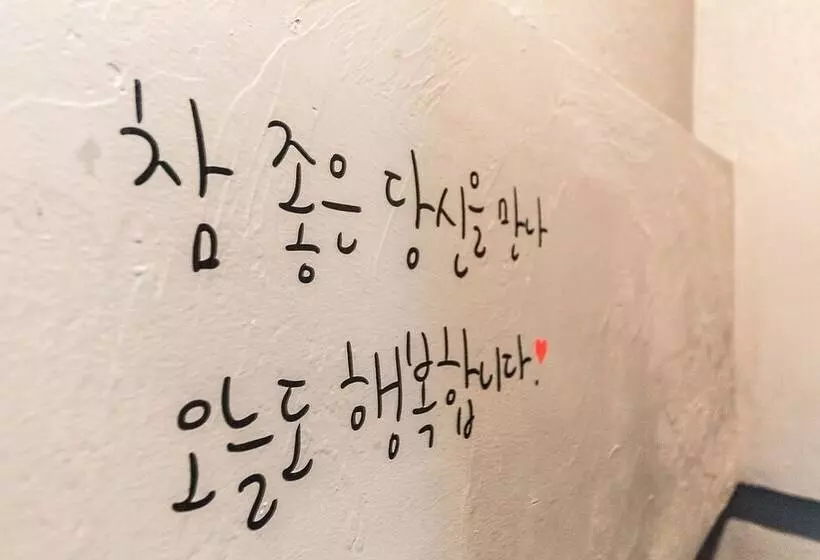 참 좋은 당신을 만나
오늘도 행복합니다.